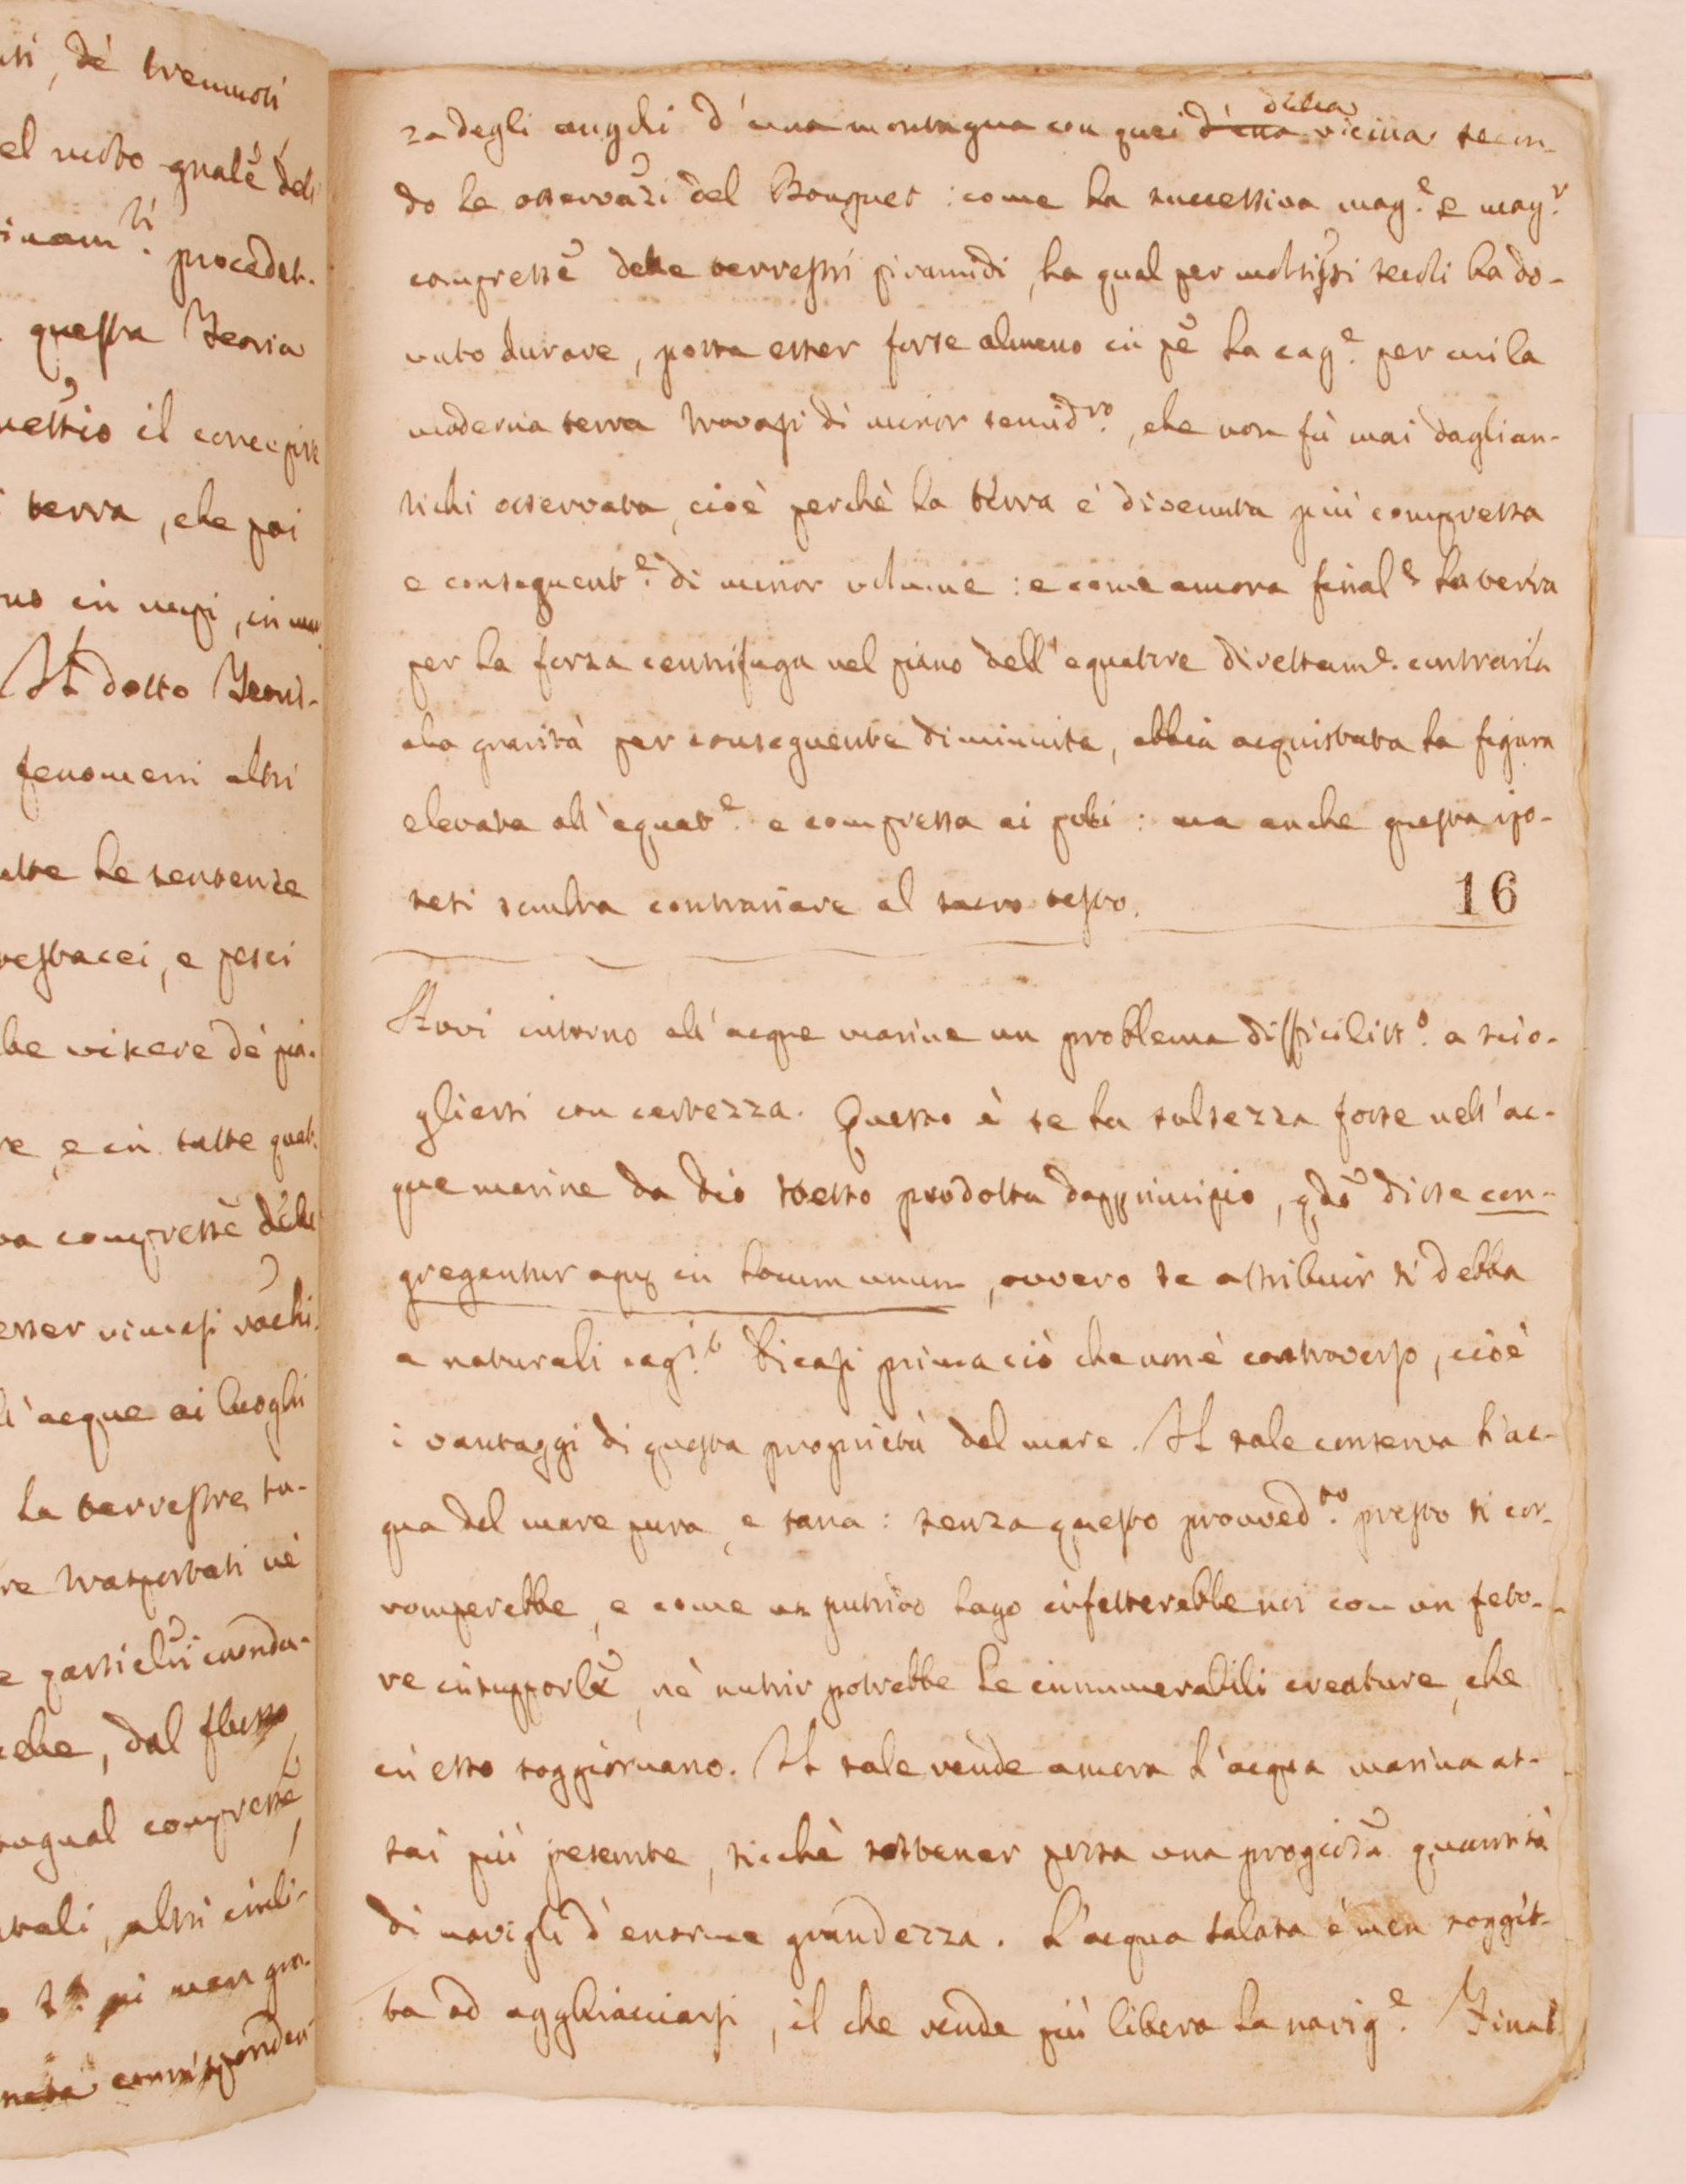 nti, de' tremuoti
el moto qual'è del
inam.ti procedet.
questa Teoria
nessio il concepire
terra, che poi
no in mesi, in un
Il dotto Teori-
fenomeni altri
utte le sentenze
testacei, e pesci
be viscere de' pia.
re, e in tutte quel.
va compressẽ dell
esser rimasi vachi.
l'acque ai luoghi
la terrestre su-
re trasportati nè
e particelũi conda-
che, dal flusso
ugual compressẽ
trali, altri cinli-
pi men gra.
neta corrisponden-
za degli angoli d'una montagna con quei d'una della vicina secon-
do le osservaz̃i del Bouguet : come la successiva mag.e e mag.r
compressẽ delle terrestri piramidi, la qual per moltiss̃i secoli ha do-
vuto durare, possa esser forse almeno in pẽ la cag.e per cui la
moderna terra trovasi di minor semid.ro, che non fù mai daglian-
tichi osservata, cioè perchè la terra è divenuta più compressa
e conseguent.e di minor volume : e come ancora final.e la terra
per la forza centrifuga nel piano dell'equatore direttam.e contraria
alla gravità per conseguente diminuita, abbia acquistata la figura
elevata all'equat.e e compressa ai poli : ma anche questa ipo-
tesi sembra contrariare al sacro testo.
16
Havvi intorno all'acque marine un problema difficiliss.o a scio-
gliersi con certezza. Questo è se la salsezza fosse nell'ac-
que marine da dio stesso prodotta dapprincipio, qdõ disse con-
gregentur aquę in locum unum, ovvero se attribuir si debba
a naturali cag.i Dicasi prima ciò che non è controverso, cioè
i vantaggi di questa proprietà del mare. Il sale conserva l'ac-
qua del mare pura, e sana : senza questo provved.to presto si cor-
romperebbe, e come un putrido lago infetterebbe noi con un feto-
re insupporlẽ, nè nutrir potrebbe le innumerabili creature, che
in esso soggiornano. Il sale rende ancora l'acqua marina as-
sai più pesente, sicchè sostener possa una progiosã quantità
di navigli d'enorme grandezza. L'acqua salata è men sogget-
ta ad agghiacciarsi, il che rende più libera la navig.e Final